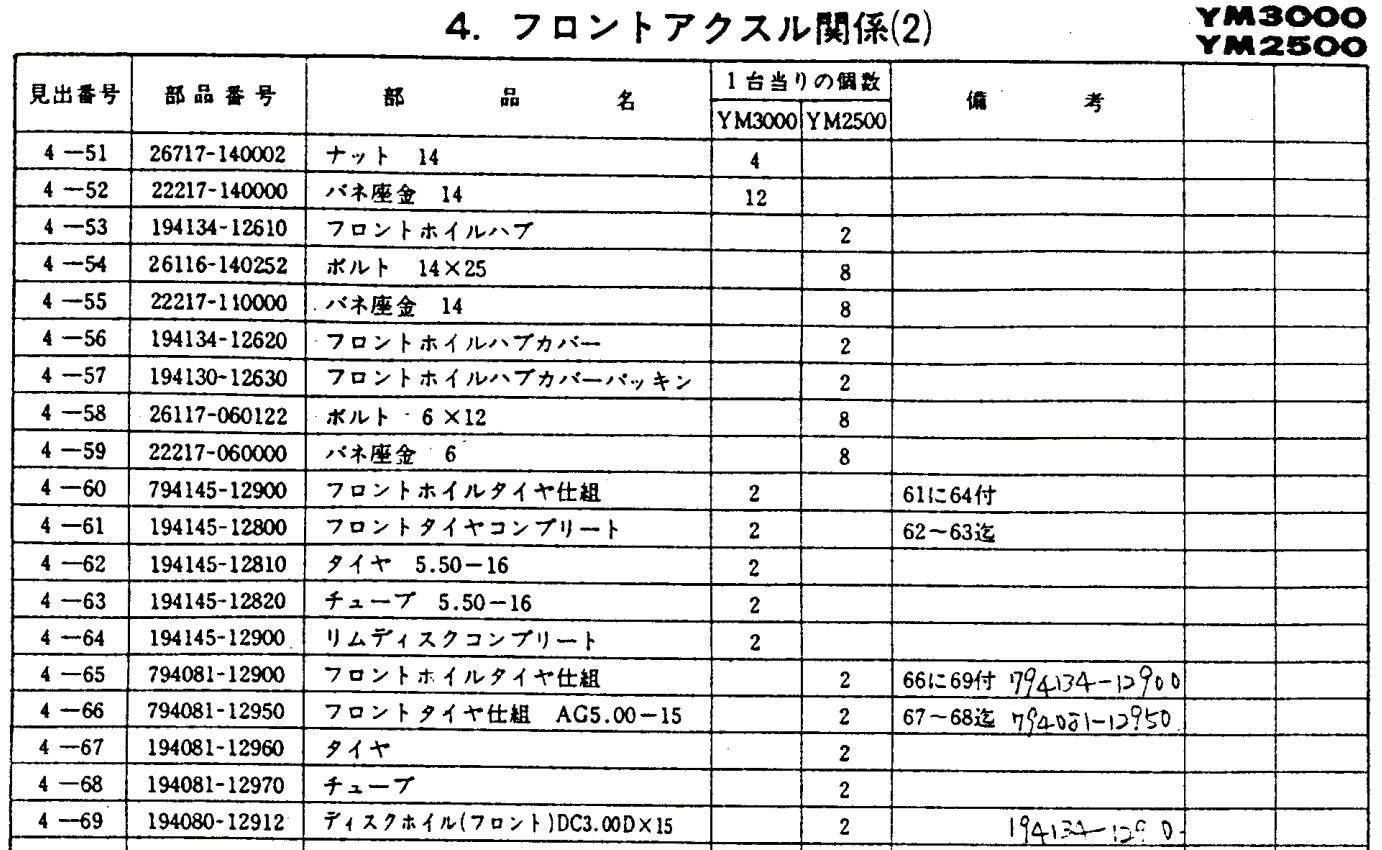 4. フロントアクスル関係(2)
YM3000
YM2500
見出番号 部品番号 部品名 1台当りの個数 備考
YM3000 YM2500
4-51 26717-140002 ナット 14 4
4-52 22217-140000 バネ座金 14 12
4-53 194134-12610 フロントホイルハブ 2
4-54 26116-140252 ボルト 14×25 8
4-55 22217-110000 バネ座金 14 8
4-56 194134-12620 フロントホイルハブカバー 2
4-57 194130-12630 フロントホイルハブカバーパッキン 2
4-58 26117-060122 ボルト 6×12 8
4-59 22217-060000 バネ座金 6 8
4-60 794145-12900 フロントホイルタイヤ仕組 2 61に64付
4-61 194145-12800 フロントタイヤコンプリート 2 62~63迄
4-62 194145-12810 タイヤ 5.50-16 2
4-63 194145-12820 チューブ 5.50-16 2
4-64 194145-12900 リムディスクコンプリート 2
4-65 794081-12900 フロントホイルタイヤ仕組 2 66に69付 794134-12900
4-66 794081-12950 フロントタイヤ仕組 AG5.00-15 2 67~68迄 794081-12950
4-67 194081-12960 タイヤ 2
4-68 194081-12970 チューブ 2
4-69 194080-12912 ディスクホイル(フロント)DC3.00D×15 2